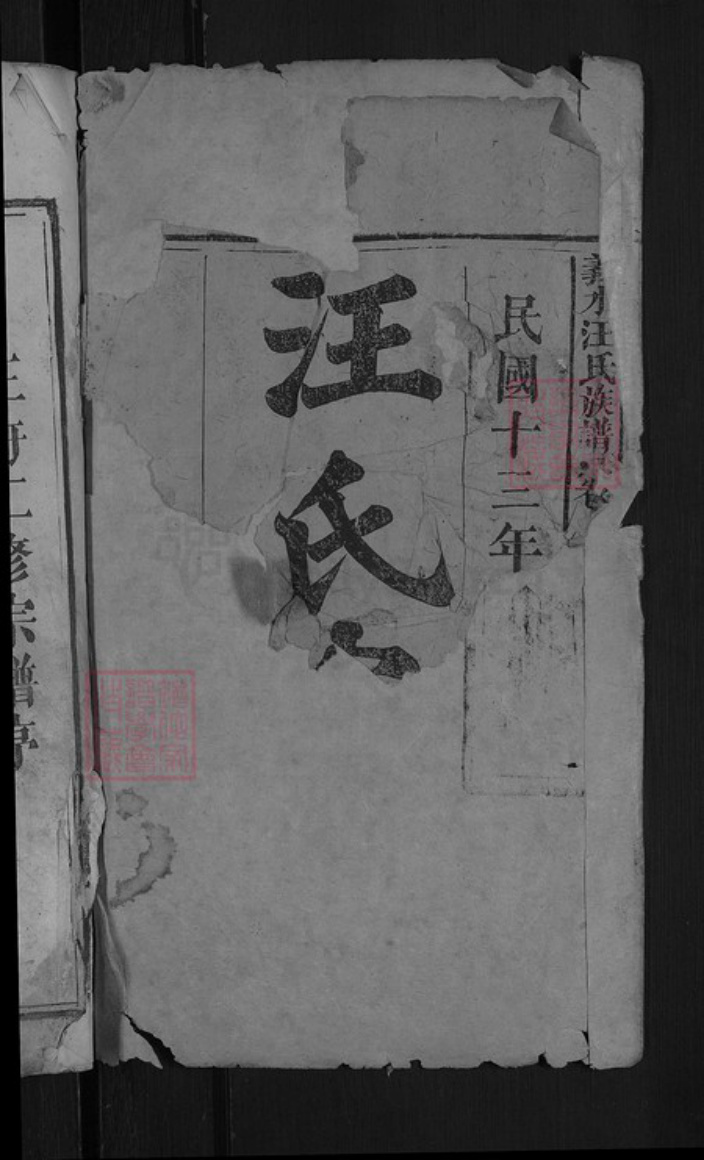 義水汪氏族譜
卷
民國十三年
汪氏
二修宗譜序